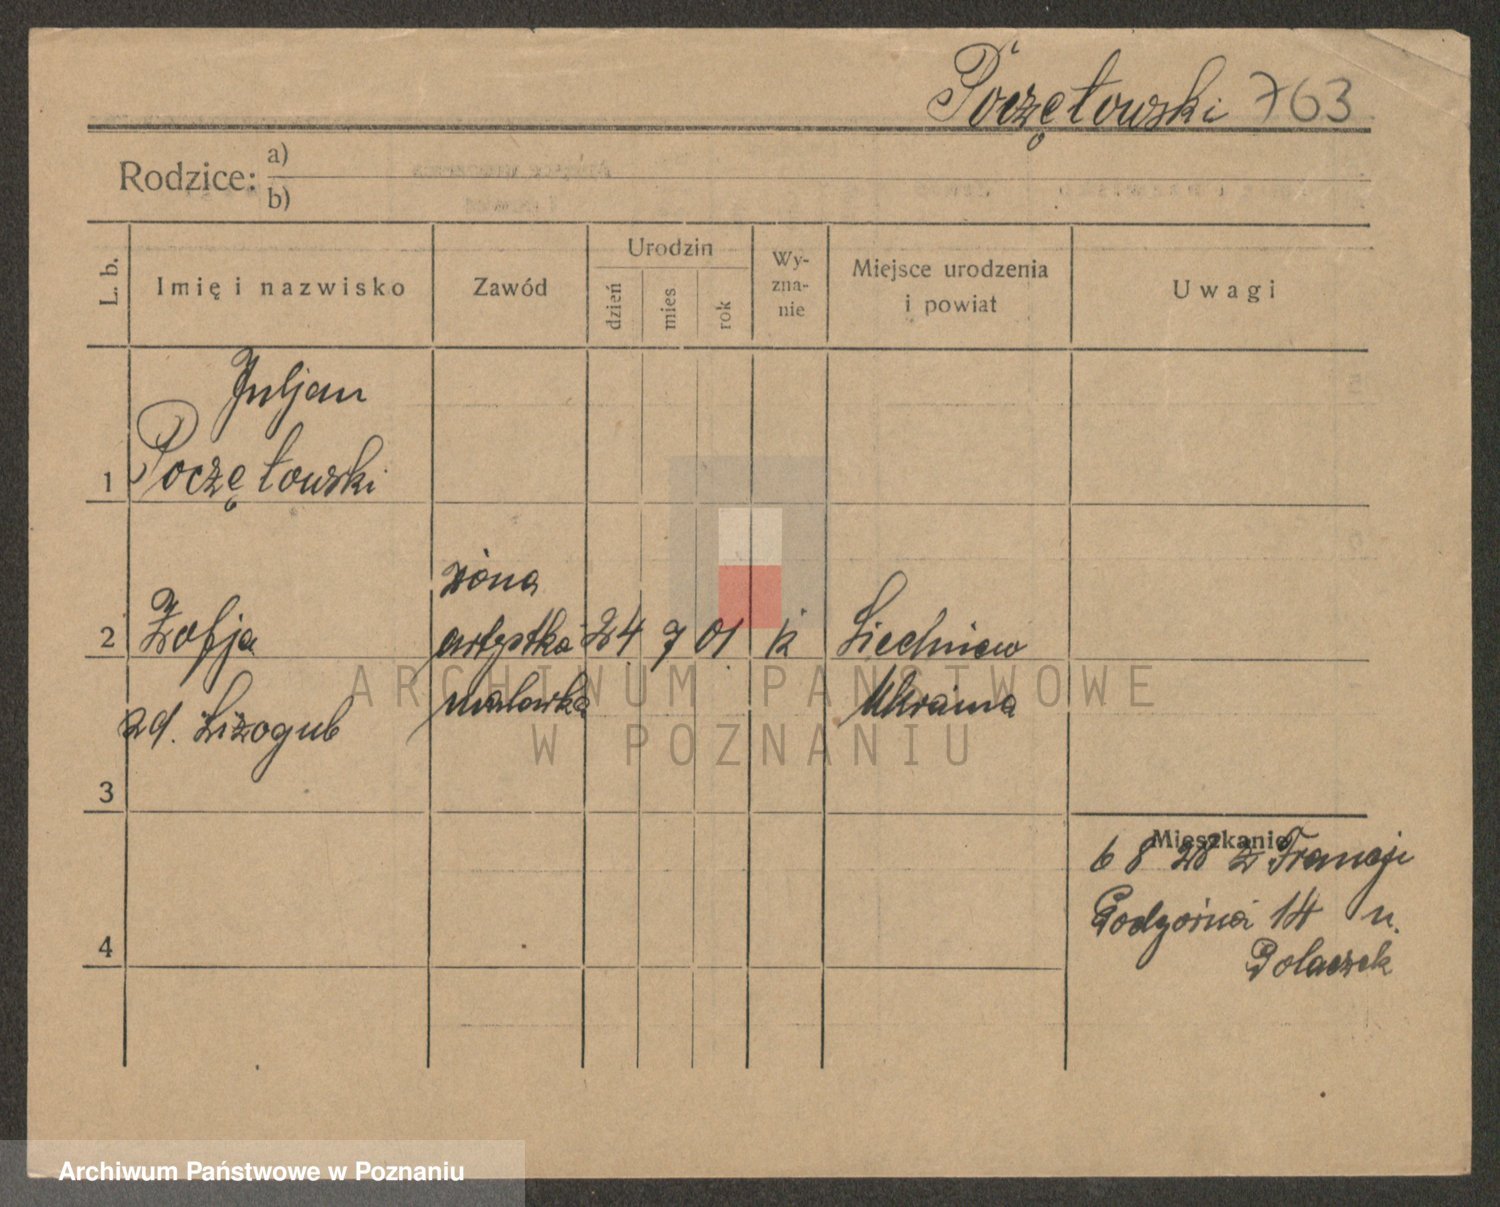 Poczętowski 763
Rodzice: a)
b)
L. b.
Imię i nazwisko
Zawód
Urodzin
dzień
mies
rok
Wy-
zna-
nie
Miejsce urodzenia
i powiat
Uwagi
Juljan
1 Poczętowski
żona
2 Zofja artystka 24 7 01 k Liechniew
zd. Lizogub malarka Ukraina
3
Mieszkanie
6 8 28 z Francji
Podgórna 14 u.
Polaczek
4
ARCHIWUM PAŃSTWOWE
W POZNANIU
Archiwum Państwowe w Poznaniu